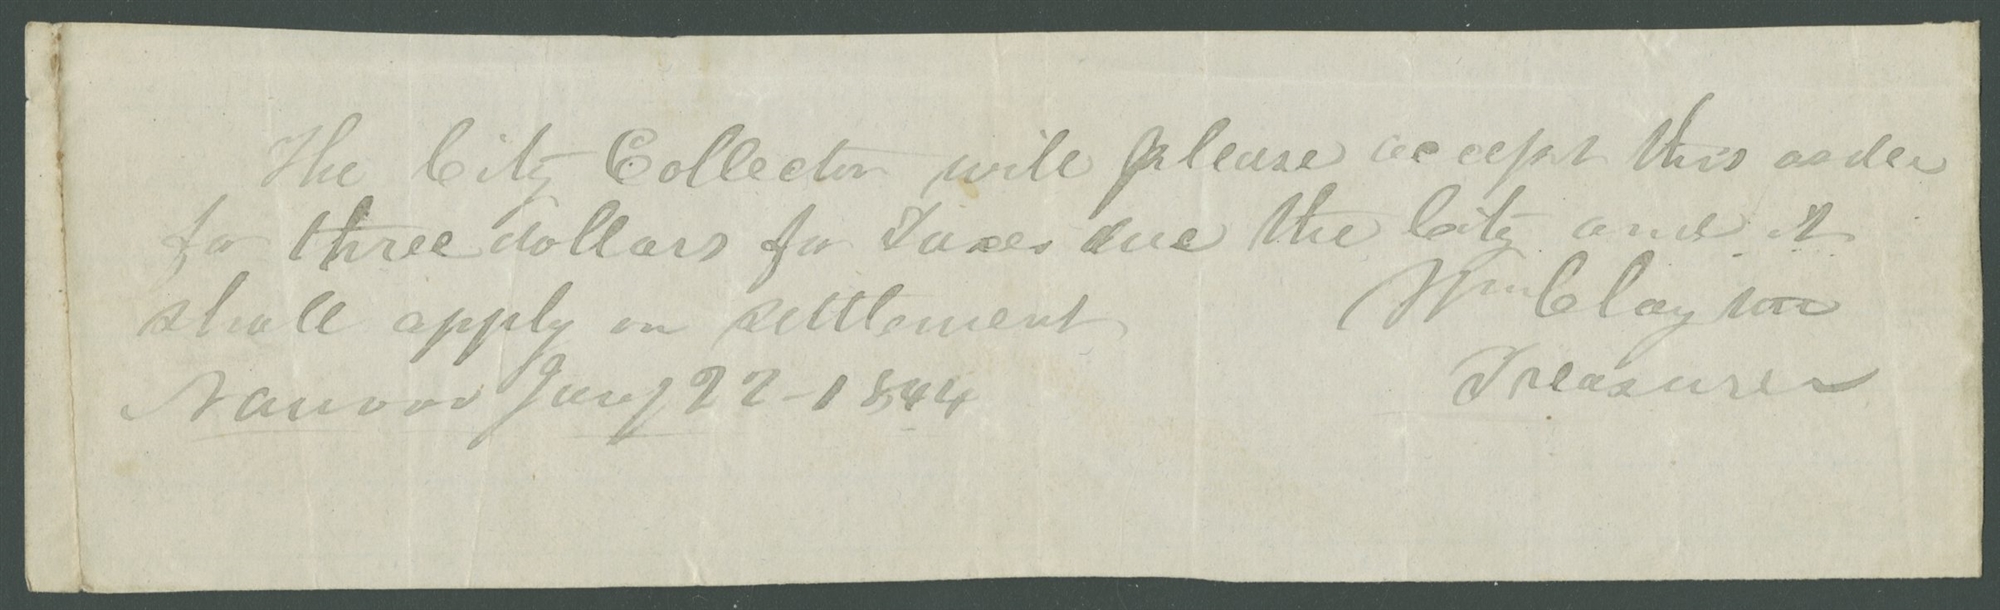 The City Collector will please accept this order
for three dollars for Taxes due the City and it
shall apply on settlement
Wm Clayton
Nauvoo Jany 22-1844
Treasurer